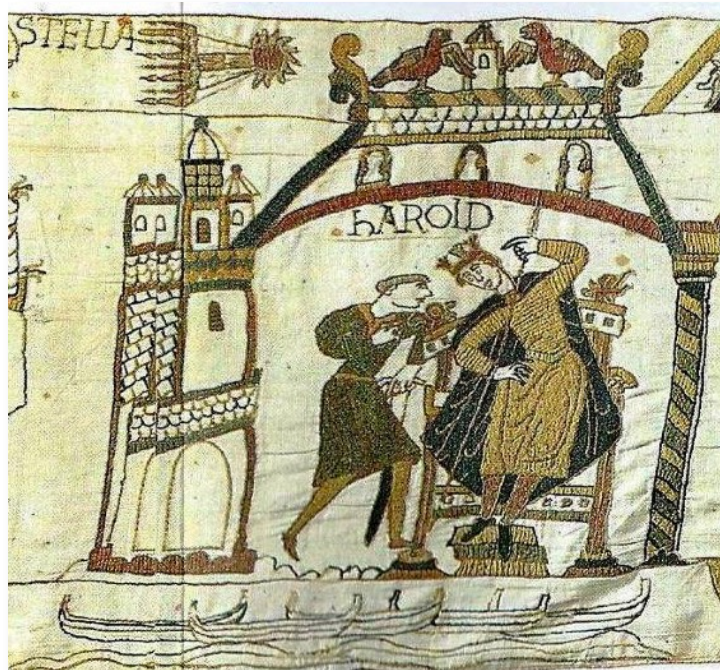 STELLA
hAROLD